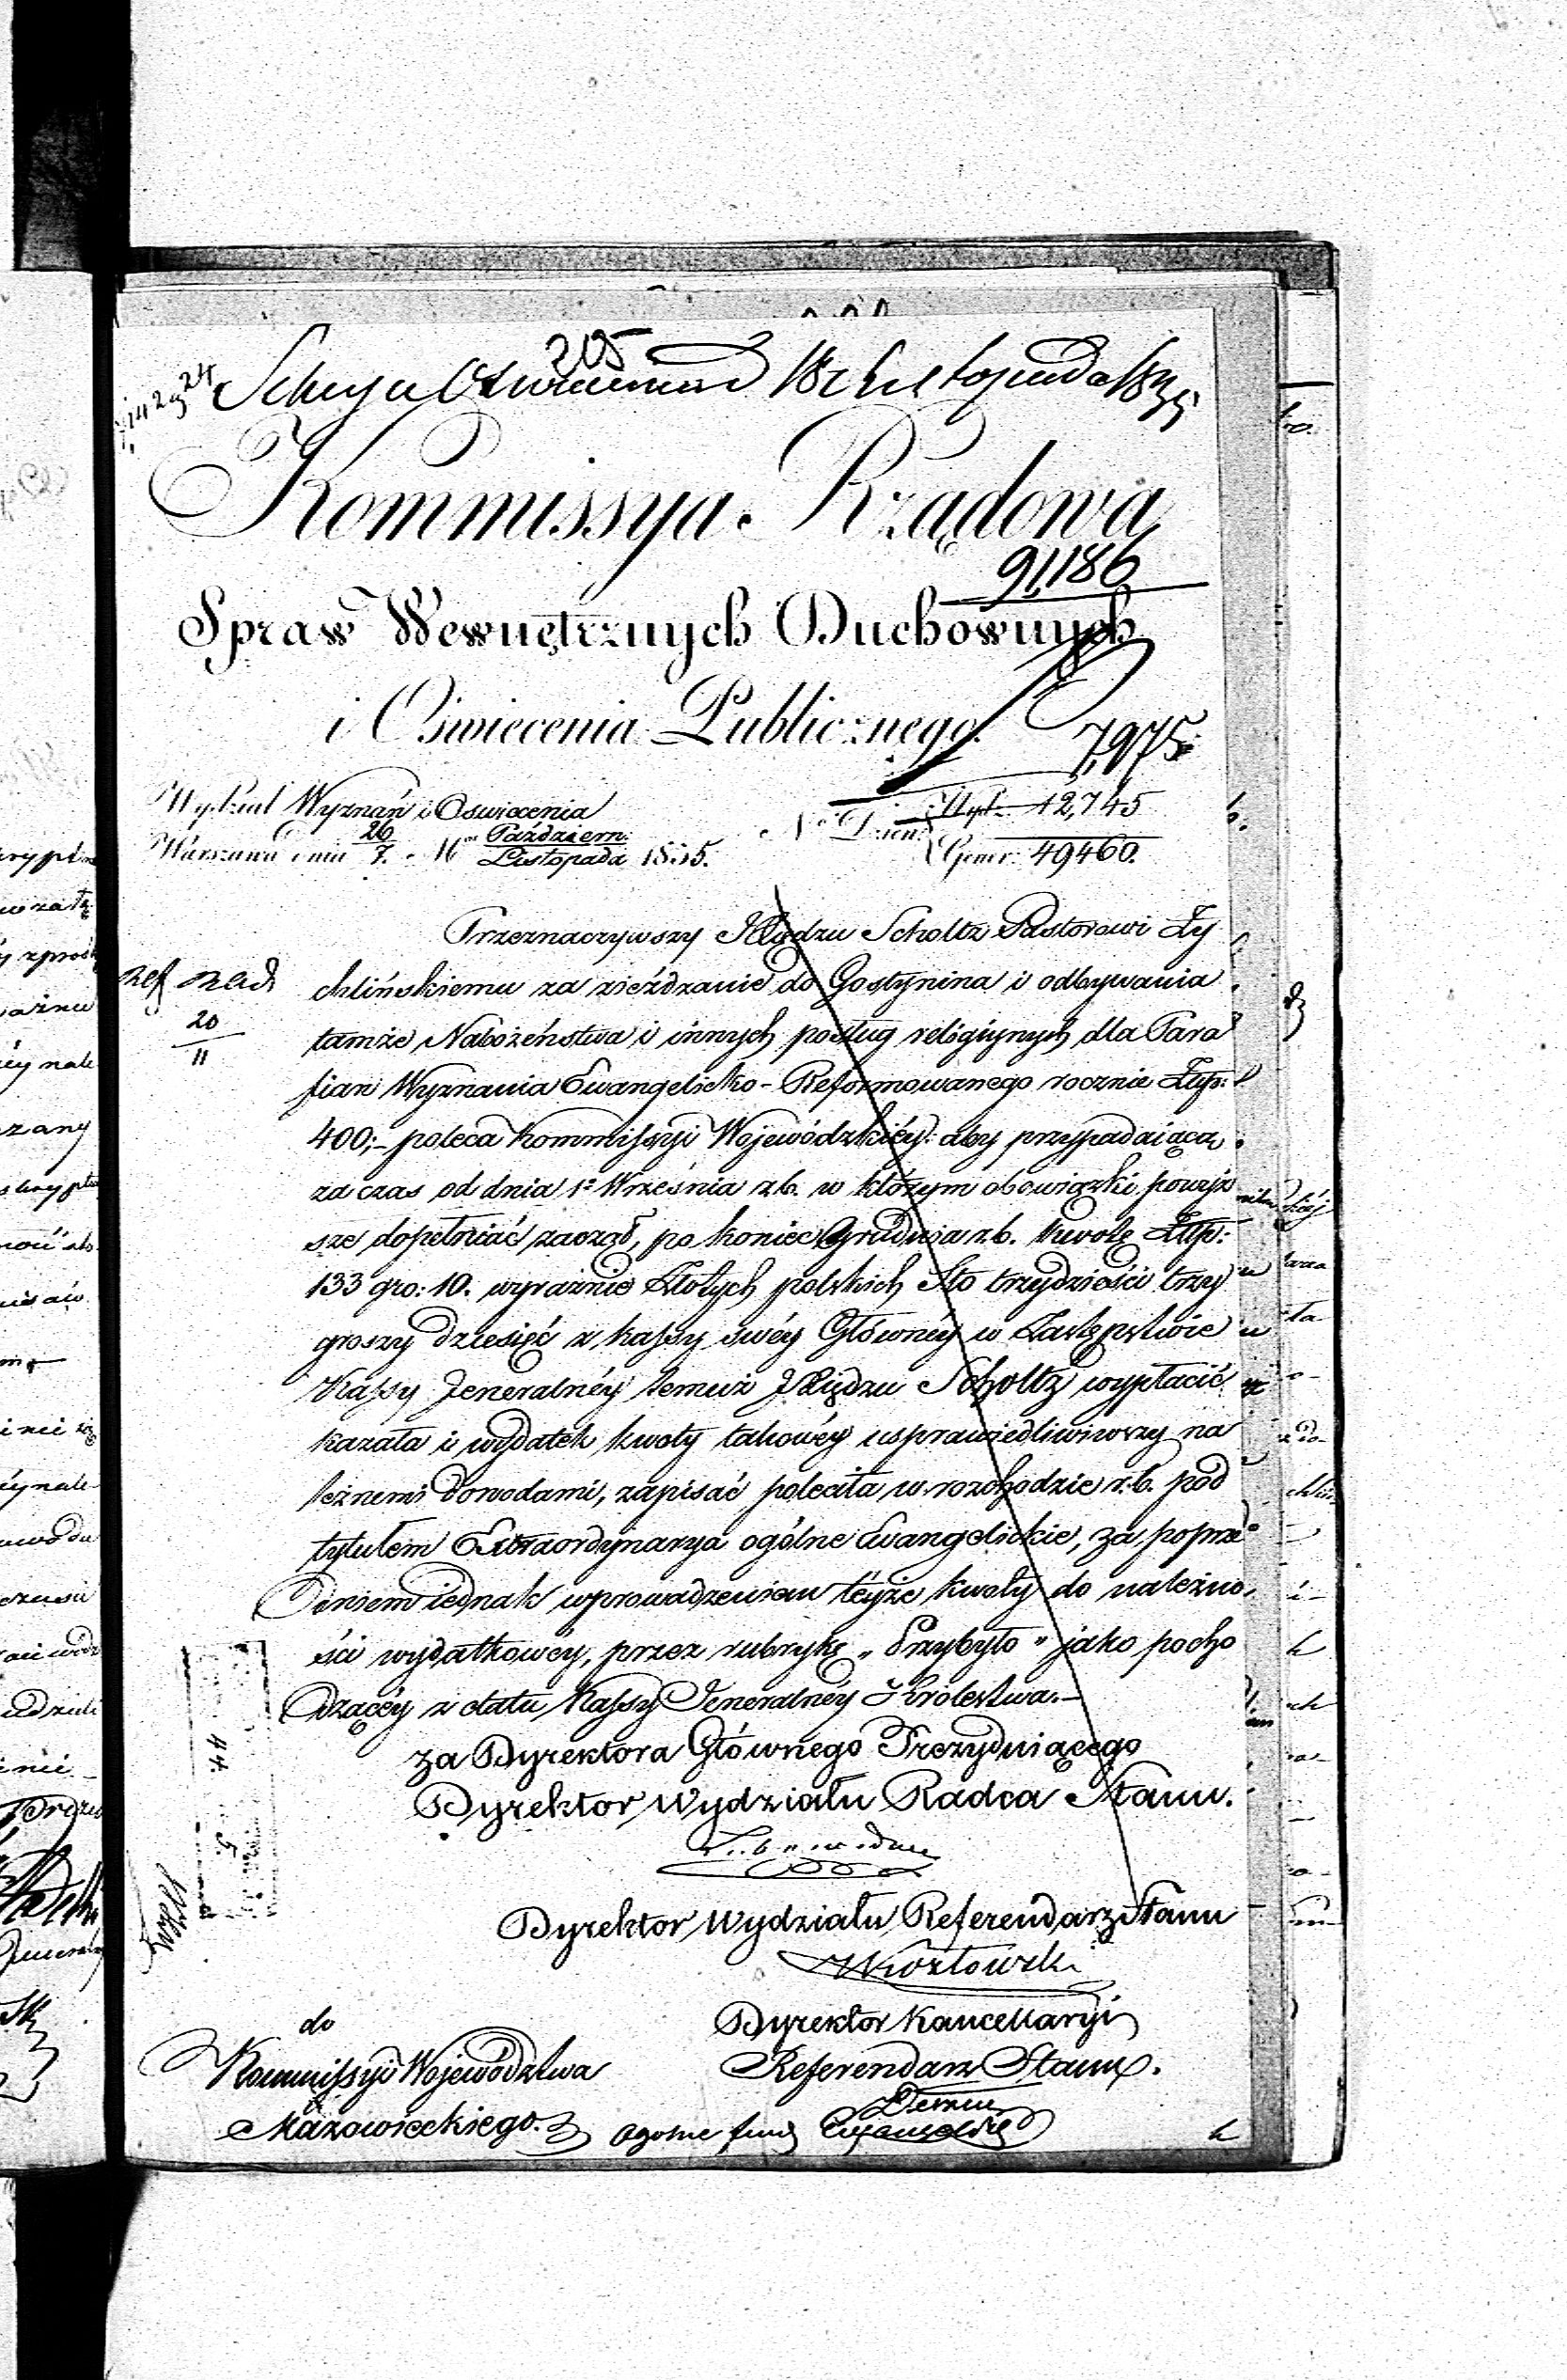 205
Kommissya Rządowa
91,186
Spraw Wewnętrznych Duchownych
i Oświecenia Publicznego
7,975
Wydział Wyznań i Oswiecenia
Warszawa dnia 26/7. Mca Październ:/Listopada 1835.
No Dzien: { Wyd. 12,745
Gener: 49460.
Przeznaczywszy Xiędzu Scholtz Pastorowi Ży
chlińskiemu za zieżdzanie do Gostynina i odbywania
20/11
tamże Nabożeństwa i innych posług religiynych dla Para
fian Wyznania Ewangelicko-Reformowanego rocznie Złp:
400;- poleca Kommissyi Wojewódzkiéy: aby przypadaiącą
za czas od dnia 1o Września r.b. w którym obowiązki powyż
sze dopełniać zaczął, po koniec Grudnia r.b. kwotę Złp:
133 gro: 10. wyraźnie Złotych polskich Sto trzydzieści trzy
groszy dziesięć z kassy swéy Głównéy w Zastępstwie
Kassy Jeneralnéy temuż Xiędzu Scholtz wypłacić
kazała i wydatek kwoty takowéy usprawiedliwiwszy na
leżnemi dowodami, zapisać poleciła w rozchodzie r.b. pod
tytułem Extraordynarya ogólne Ewangelickie, za poprze
dniem iednak wprowadzeniem téyże kwoty do należno
ści wydatkowéy, przez rubrykę „Przybyło" jako pocho
dzącéy z etatu Kassy Jeneralnéy Królestwa.-
za Dyrektora Głównego Prezyduiącego
Dyrektor Wydziału Radca Stanu.
Dyrektor Wydziału Referendarz Stanu
Kozłowski
Dyrektor Kancellaryi
Referendarz Stanu.
do
Kommissyi Województwa
Mazowieckiego.